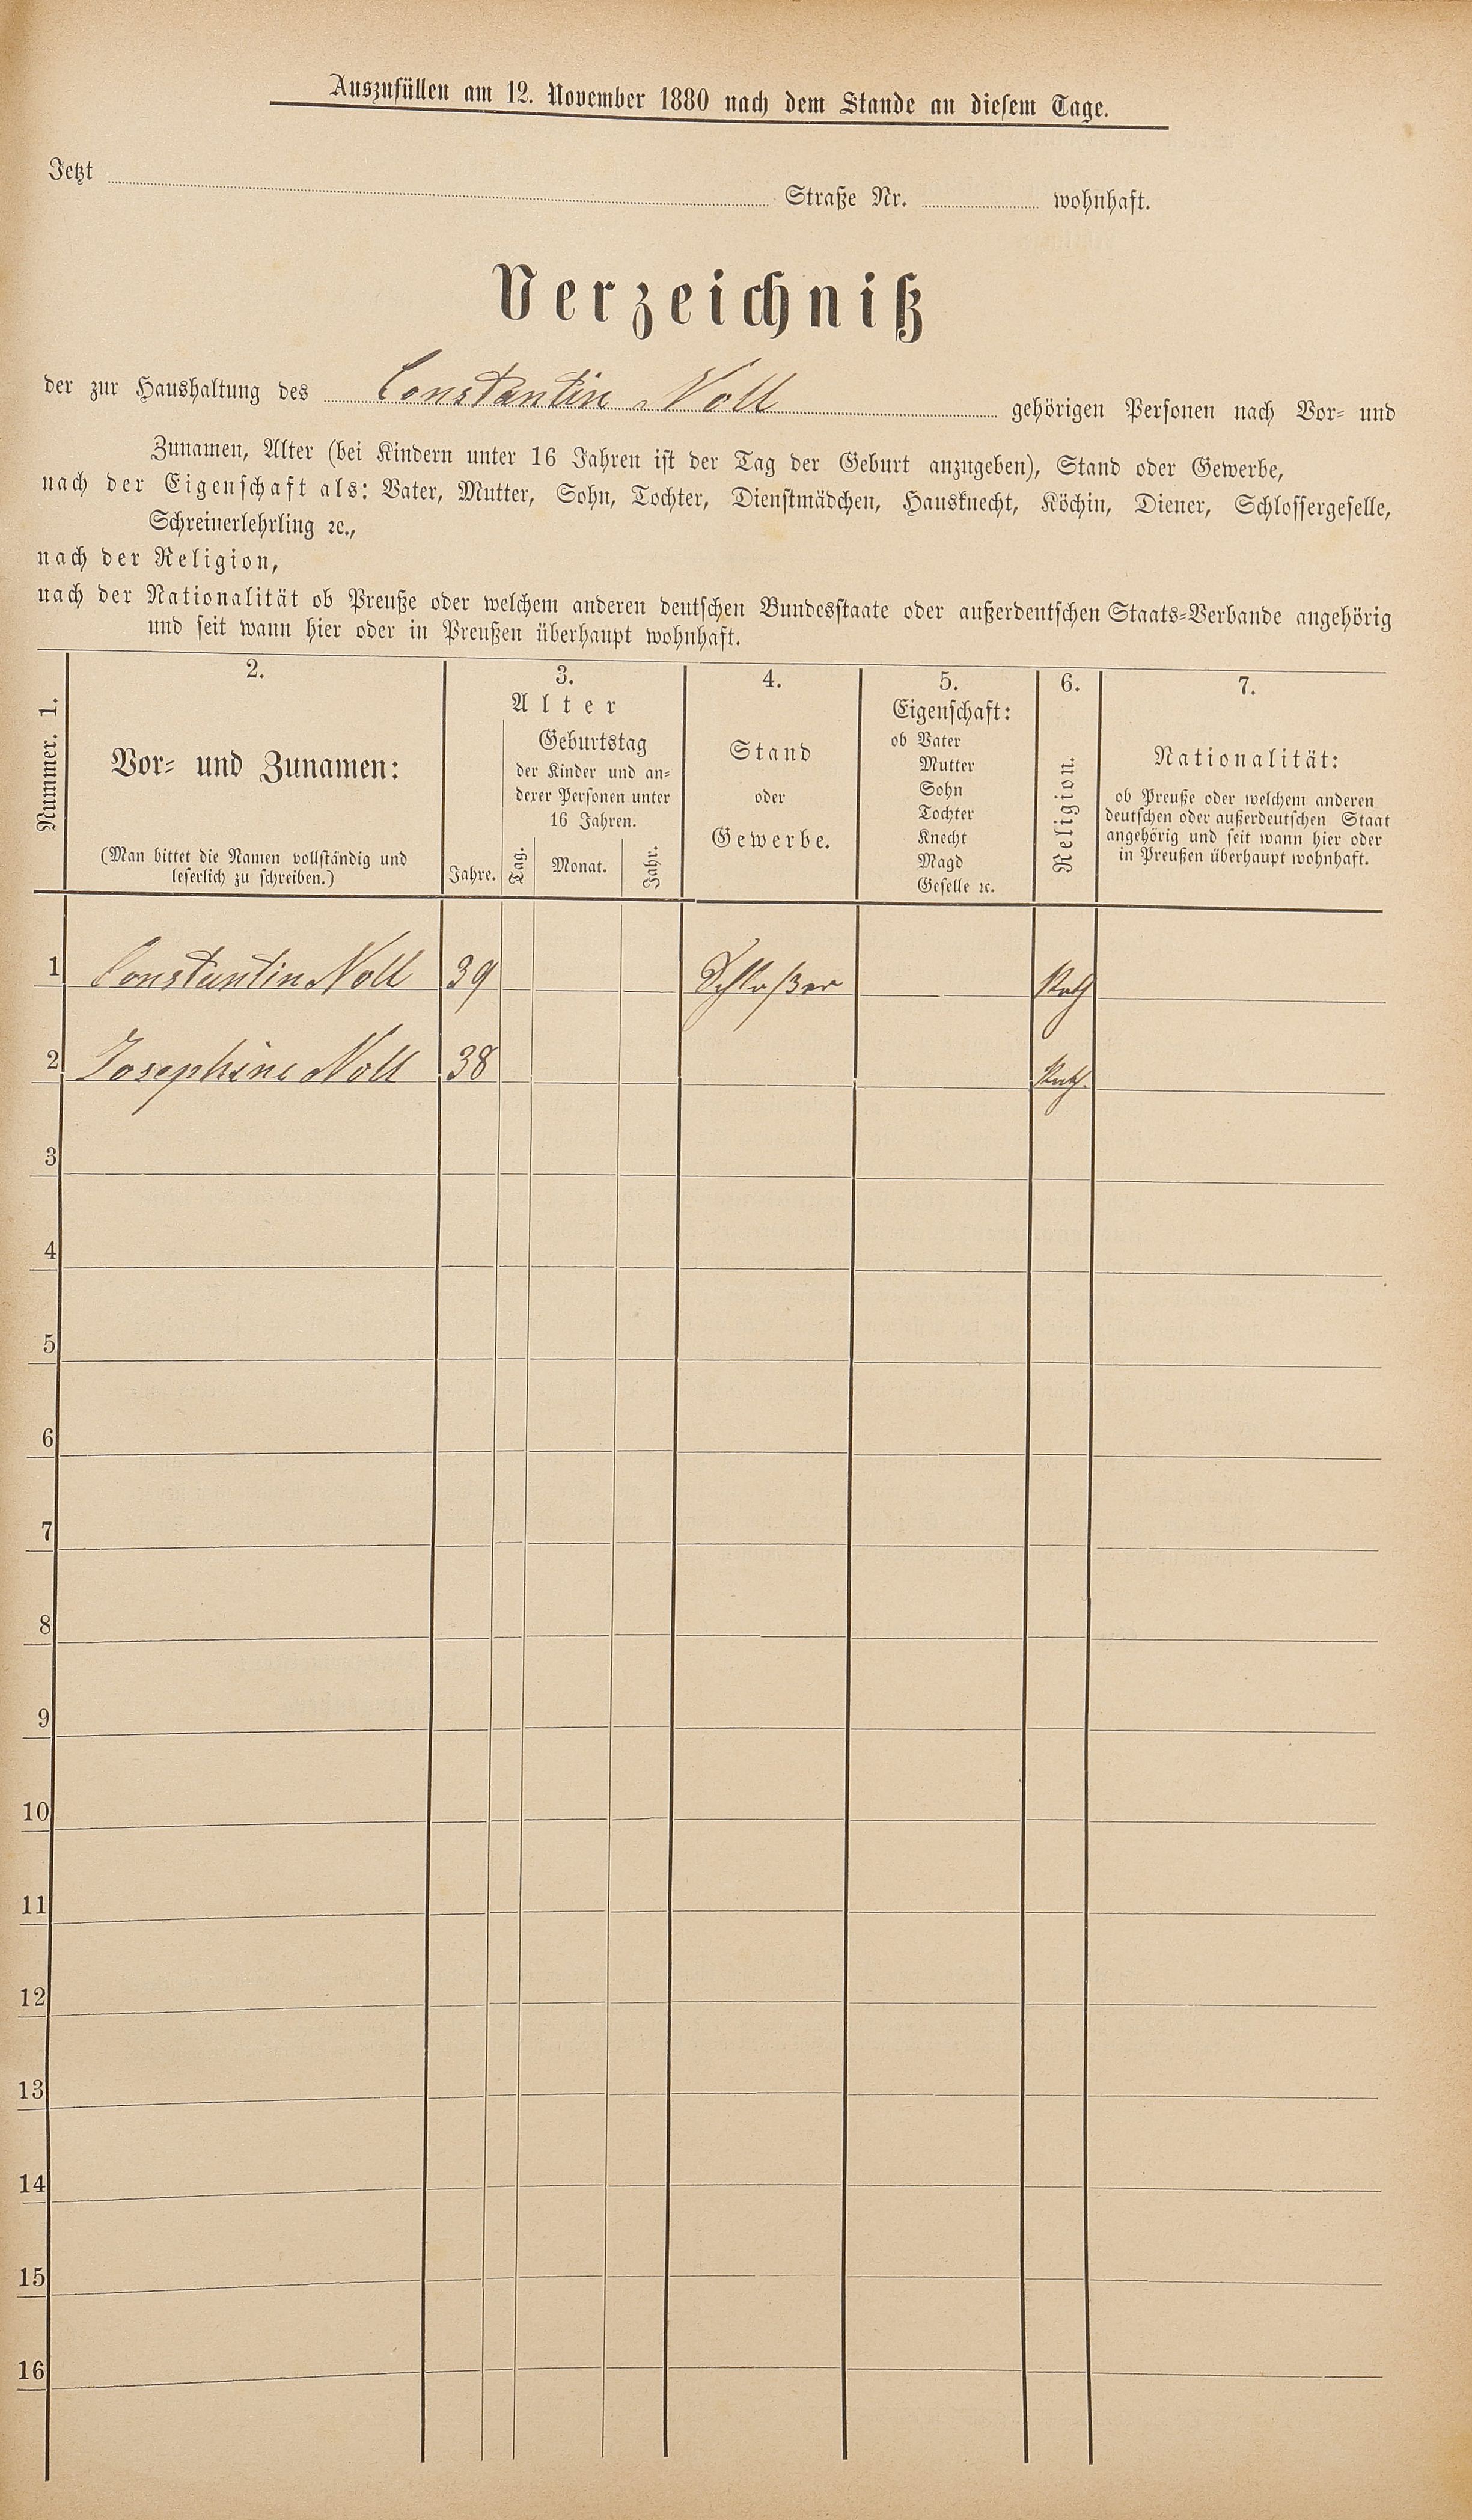 Auszufüllen am 12. November 1880 nach dem Stande an diesem Tage.
Jetzt Straße Nr. wohnhaft.
Verzeichniß
der zur Haushaltung des Constantin Noll gehörigen Personen nach Vor- und
Zunamen, Alter (bei Kindern unter 16 Jahren ist der Tag der Geburt anzugeben), Stand oder Gewerbe,
nach der Eigenschaft als: Vater, Mutter, Sohn, Tochter, Dienstmädchen, Hausknecht, Köchin, Diener, Schlossergeselle,
Schreinerlehrling ꝛc.,
nach der Religion,
nach der Nationalität ob Preuße oder welchem anderen deutschen Bundesstaate oder außerdeutschen Staats-Verbande angehörig
und seit wann hier oder in Preußen überhaupt wohnhaft.
Nummer. 1.
2.
Vor- und Zunamen:
(Man bittet die Namen vollständig und
leserlich zu schreiben.)
3.
Alter
Jahre.
Geburtstag
der Kinder und an-
derer Personen unter
16 Jahren.
Tag. Monat. Jahr.
4.
Stand
oder
Gewerbe.
5.
Eigenschaft:
ob Vater
Mutter
Sohn
Tochter
Knecht
Magd
Geselle ꝛc.
6.
Religion.
7.
Nationalität:
ob Preuße oder welchem anderen
deutschen oder außerdeutschen Staat
angehörig und seit wann hier oder
in Preußen überhaupt wohnhaft.
1 Constantin Noll 39 Schloßer Kath
2 Josephine Noll 38 Kath.
3
4
5
6
7
8
9
10
11
12
13
14
15
16